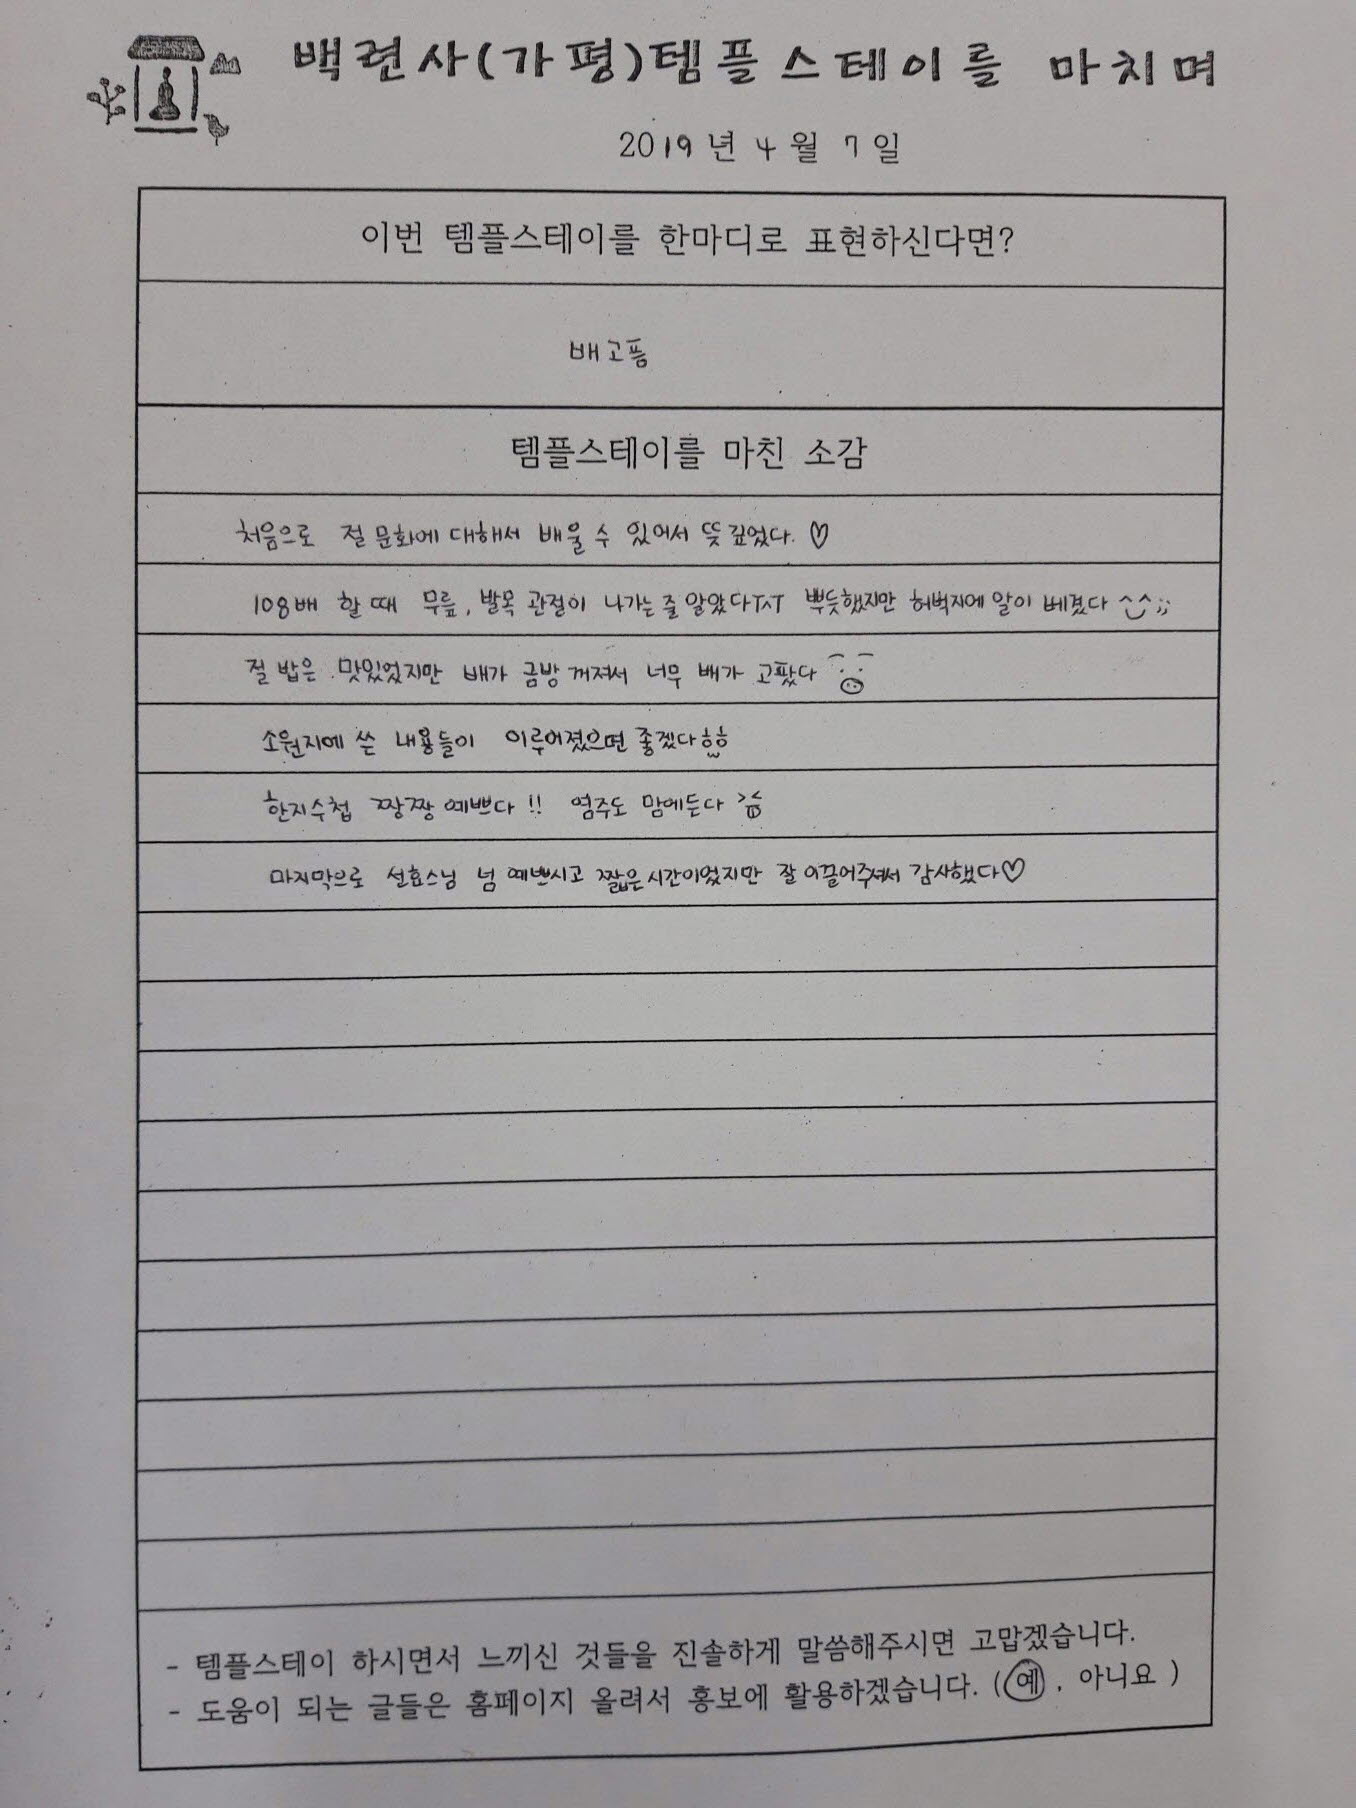 백련사(가평)템플스테이를 마치며
2019년 4월 7일
이번 템플스테이를 한마디로 표현하신다면?
배고픔
템플스테이를 마친 소감
처음으로 절 문화에 대해서 배울 수 있어서 뜻 깊었다. ♡
108배 할 때 무릎, 발목 관절이 나가는 줄 알았다ㅜㅅㅜ 뿌듯했지만 허벅지에 알이 베겼다 ^^;;
절 밥은 맛있었지만 배가 금방 꺼져서 너무 배가 고팠다
소원지에 쓴 내용들이 이루어졌으면 좋겠다ㅎㅎ
한지수첩 짱짱 예쁘다!! 염주도 맘에든다 ><
마지막으로 선효스님 넘 예쁘시고 짧은시간이었지만 잘 이끌어주셔서 감사했다♡
- 템플스테이 하시면서 느끼신 것들을 진솔하게 말씀해주시면 고맙겠습니다.
- 도움이 되는 글들은 홈페이지 올려서 홍보에 활용하겠습니다. (예, 아니요)